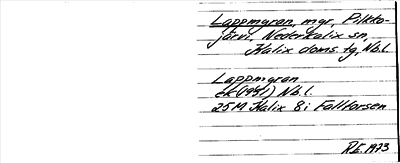 Lappmyran, myr, Pilkko-
järvi, Nederkalix sn,
Kalix doms tg, Nb.l.
Lappmyran
ek (1951) Nb.l.
25M Kalix 8i Fallforsen
R.E. 1973